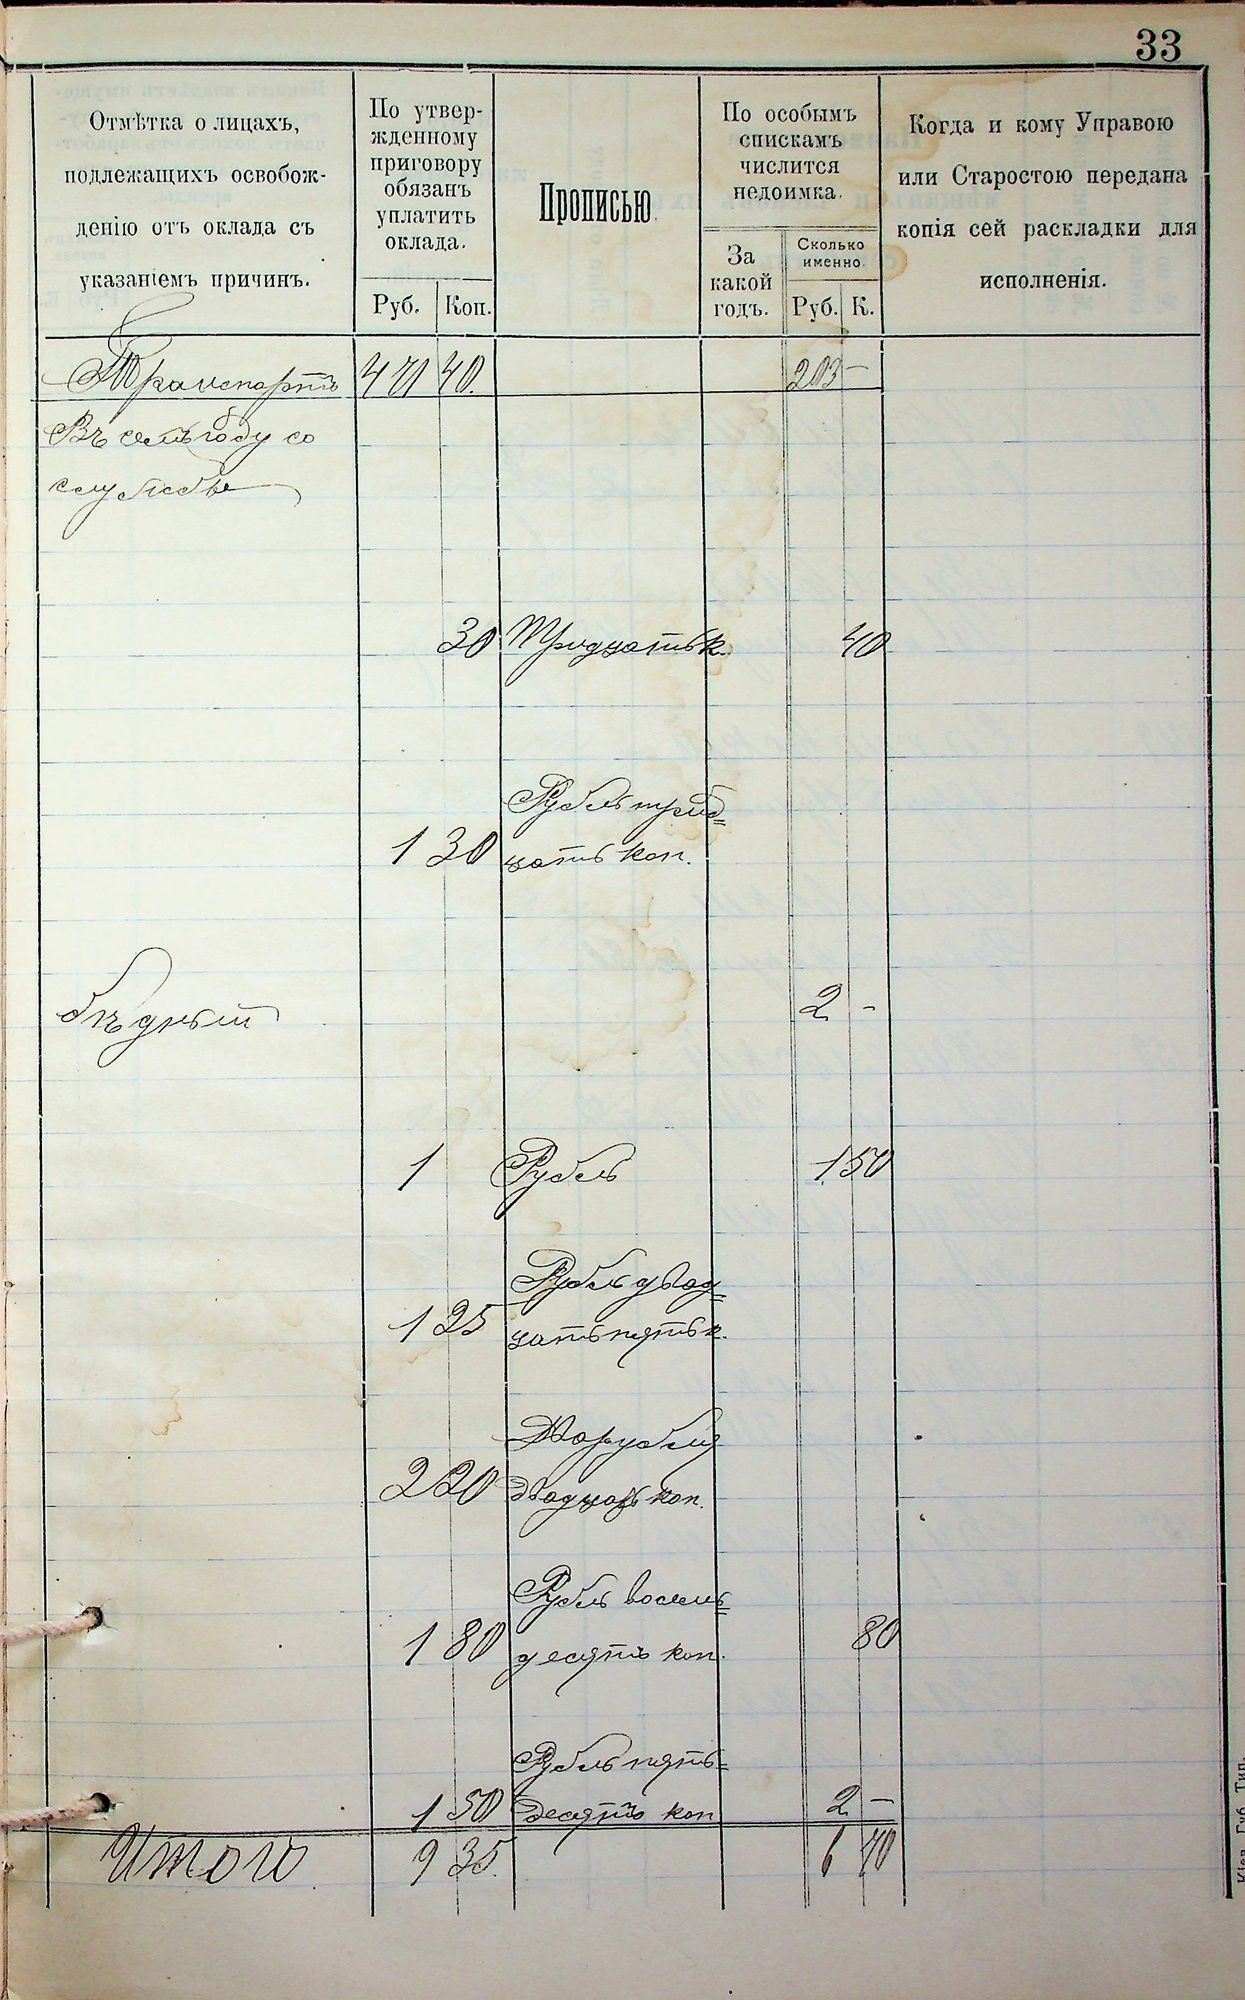 33
Отмѣтка о лицахъ,
подлежащихъ освобож-
денію отъ оклада съ
указаніемъ причинъ.
По утвер-
жденному
приговору
обязанъ
уплатить
оклада.
Руб. Коп.
Прописью.
По особымъ
спискамъ
числится
недоимка.
За
какой
годъ.
Сколько
именно.
Руб. К.
Когда и кому Управою
или Старостою передана
копія сей раскладки для
исполненія.
Транспортъ 471 40. 203 -
Въ семъ году со
службы
30 Тридцать к. 40
Рубль трид=
1 30 цать коп.
бѣдный 2 -
1 Рубль 1 50
Рубль двад=
1 25 цать пять к.
Два рубля
2 20 двадцать коп.
Рубль восемь=
1 80 десятъ коп. 80
Рубль пять=
1 50 десятъ коп 2 -
Итого. 9 35. 6 70
Кіев. Губ. Тип.